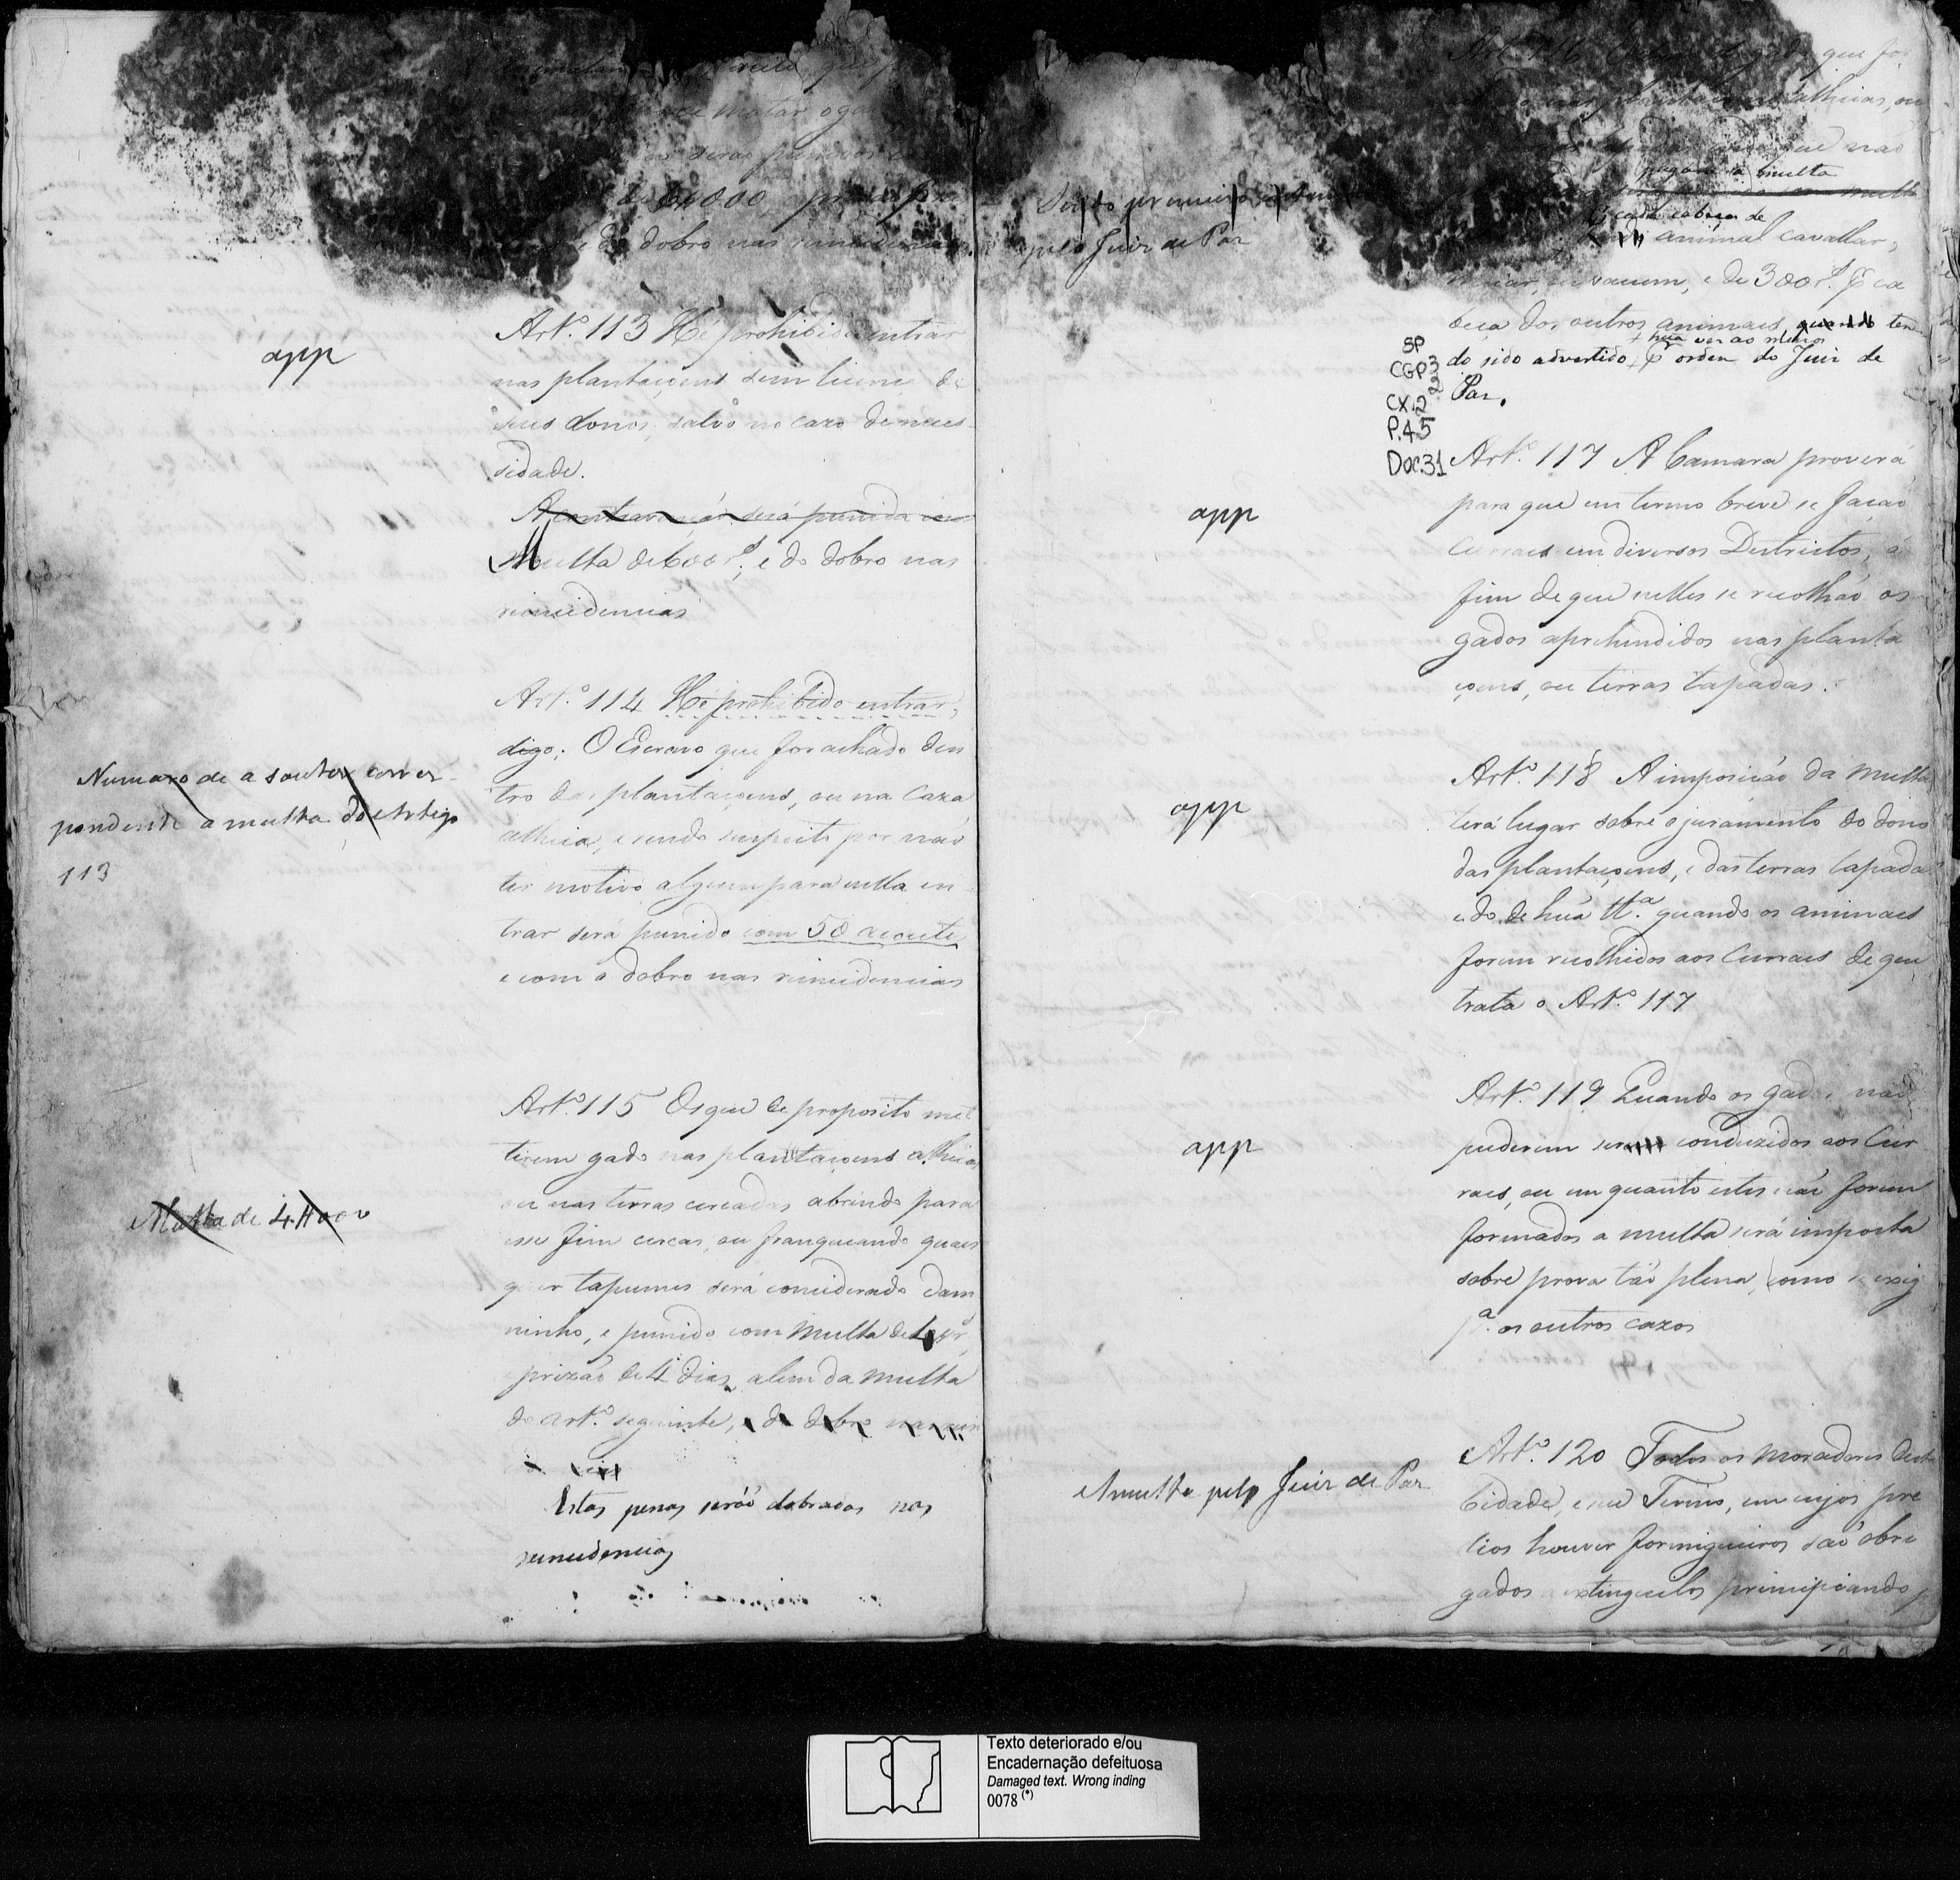 matar o ga
serão punidos
de 6$000,
e do dobro nas reincidencias
app
Artº. 113 Hé prohibido entrar
nas plantaçoens sem licença de
seus donos, salvo no cazo de neces
sidade.
A contravenção será punida com
Multa de 600 rs., e do dobro nas
reincidencias
Artº. 114 Hé prohibido entrar,
digo; O Escravo que for achado den
tro das plantaçoens, ou na Caza
alheia, e sendo suspeito por não
ter motivo algum para nella en
trar será punido com 50 açoutes
e com o dobro nas reincidencias
Numaro de a soutes corres
pondente a multa do Artigo
113
Artº. 115 Os que de proposito met
terem gado nas plantaçoens alheias
ou nas terras cercadas abrindo para
esse fim cercas, ou franqueando quaes
quer tapumes será considerado dam
ninho, e punido com Multa de
prizão de 4 dias, alem da multa
do artº. seguinte, e do dobro nas rein
Estas penas serão dobradas nas
reincidencias
Multa de 4$000
pelo Juiz de Paz
Artº. 116
que for
alheias, ou
que não
pagará a multa
multa
cada cabeça de
animal cavallar,
ou vacum, e de 300 rs. ca
beça dos outros animaes, quando ten
huã vez ao menos
do sido advertido, ordem do Juiz de
Paz.
SP
CGP3
2
CX.2
P.45
Doc.31
app
Artº. 117 A Camara proverá
para que em termo breve se façaõ
Curraes em diversos Destrictos, á
fim de que nelles se recolhão os
gados aprehendidos nas planta
çoens, ou terras tapadas.
app
Artº. 118 A imposição da Multa
terá lugar sobre o juramento do dono
das plantaçoens, e das terras tapadas
e do de huã tta. quando os animaes
forem recolhidos aos Curraes de que
trata o Artº. 117
app
Artº. 119 Quando os gados não
puderem ser conduzidos aos Cur
raes, ou em quanto estes não forem
formados a multa será imposta
sobre prova tão plena, como se exige
pa. os outros cazos
A multa pelo Juiz de Paz
Artº. 120 Todos os moradores desta
Cidade, e seu Termo, em cujos pre
dios houver formigueiros são obri
gados a extinguilos principiando
Texto deteriorado e/ou
Encadernação defeituosa
Damaged text. Wrong inding
0078 (*)